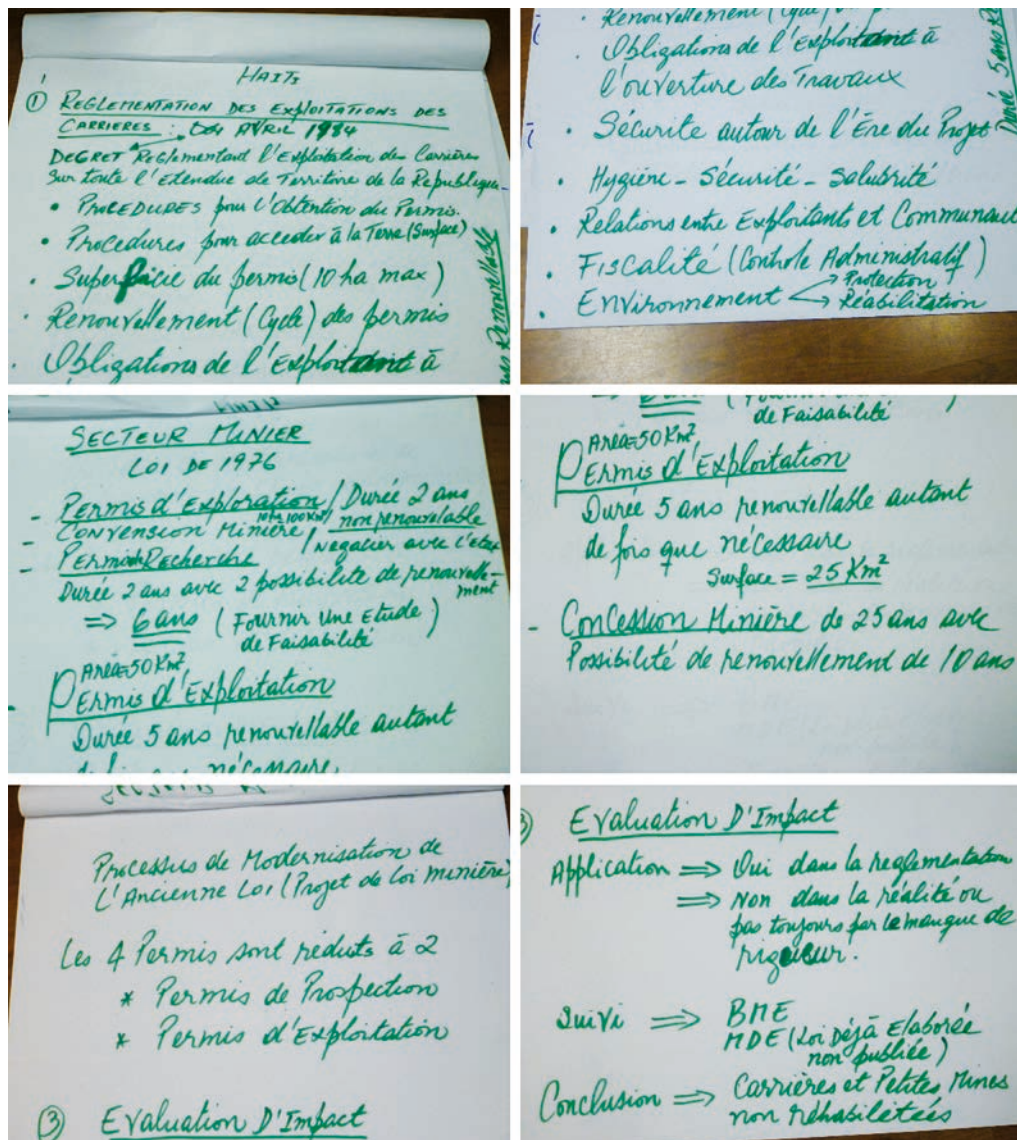 HAITI
① REGLEMENTATION DES EXPLOITATIONS DES
CARRIERES : AVRIL 1984
DECRET Reglementant l'Exploitation des Carrières
Sur toute l'Etendue de Territoire de la Republique
• PROCEDURES pour l'Obtention du Permis.
• Procedures pour acceder à la Terre (Surface)
• Superficie du permis (10 ha max)
• Renouvellement (Cycle) des permis
• Obligations de l'Exploitant à
ans Renouvellable
• Renouvellement (Cycle)
• Obligations de l'Exploitant à
l'ouverture des Travaux
• Sécurite autour de l'Ere du Projet
Durée 5 ans
• Hygiène - Sécurité - Salubrité
• Relations entre Exploitants et Communaut
• FISCALITÉ (Controle Administratif)
• ENVIRONNEMENT → Protection
→ Réabilitation
SECTEUR MINIER
LOI DE 1976
- Permis d'Exploration / Durée 2 ans
Convension Minière / non renouvelable
/ Negocier avec l'etat
- Permis Recherche
Durée 2 ans avec 2 possibilite de renouvelle-
ment
=> 6 ans (Fournir Une Etude
de Faisabilité)
Area=50 Km²
- Permis d'Exploitation
Durée 5 ans renouvellable autant
de fois que nécessaire
de Faisabilité
Area=50 Km²
Permis d'Exploitation
Durée 5 ans renouvellable autant
de fois que nécessaire
Surface = 25 Km²
- Concession Minière de 25 ans avec
Possibilité de renouvellement de 10 ans
Processus de Modernisation de
L'Ancienne Loi (Projet de loi minière)
Les 4 Permis sont réduts à 2
* Permis de Prospection
* Permis d'Exploitation
③ Evaluation D'Impact
Evaluation D'Impact
Application => Oui dans la reglementation
=> Non dans la réalité ou
pas toujours par le manque de
rigueur.
Suivi => BME
MDE (Loi Déjà Elaborée
non publiée)
Conclusion => Carrières et Petites Mines
non rehabilitées